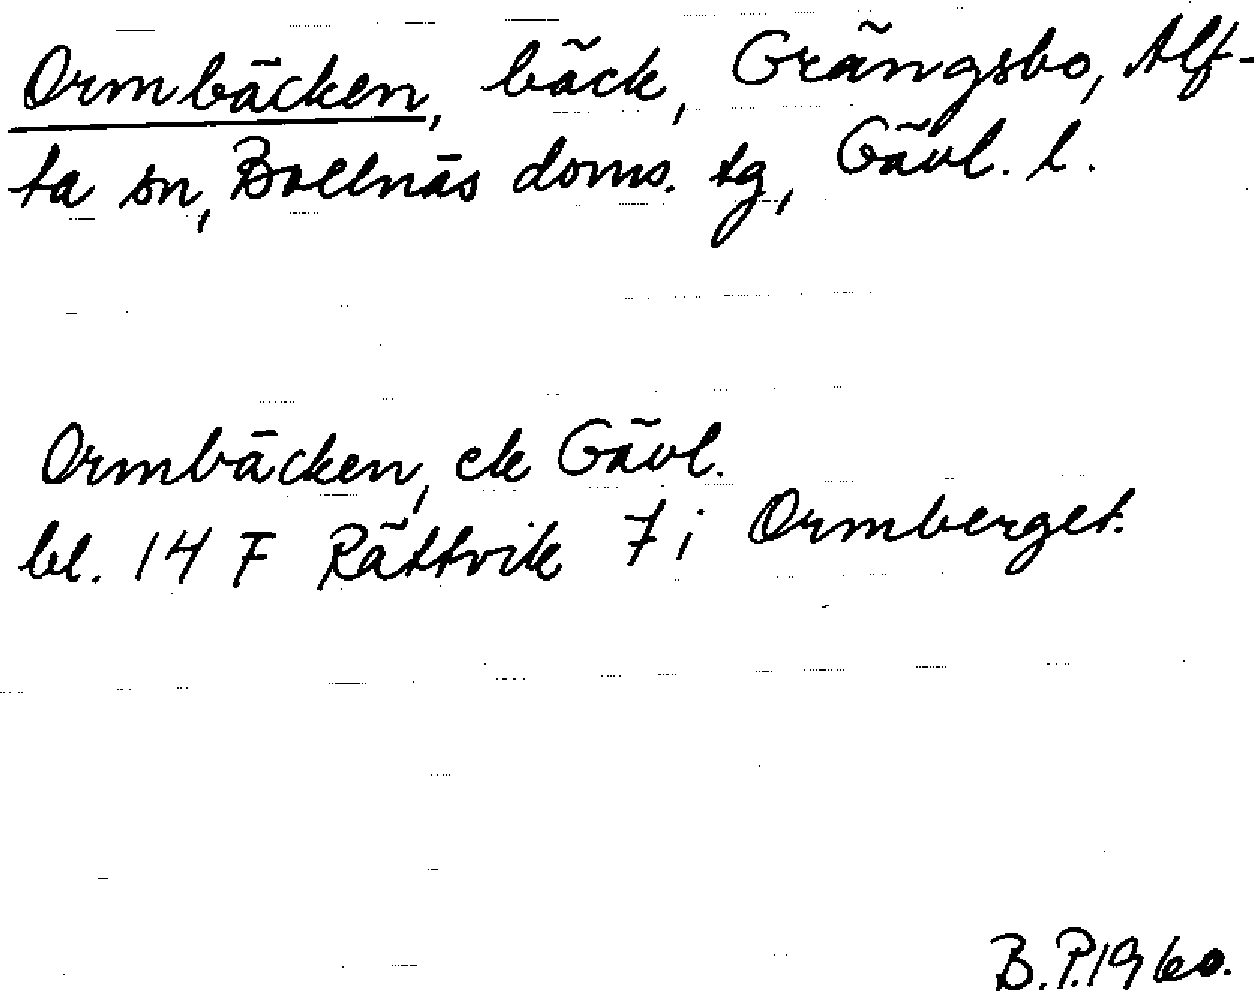 Ormbäcken, bäck, Grängsbo, Alf-
ta sn, Bollnäs doms. tg, Gävl. l.
Ormbäcken, ek Gävl.
bl. 14 F Rättvik 7; Ormberget.
B.P. 1960.